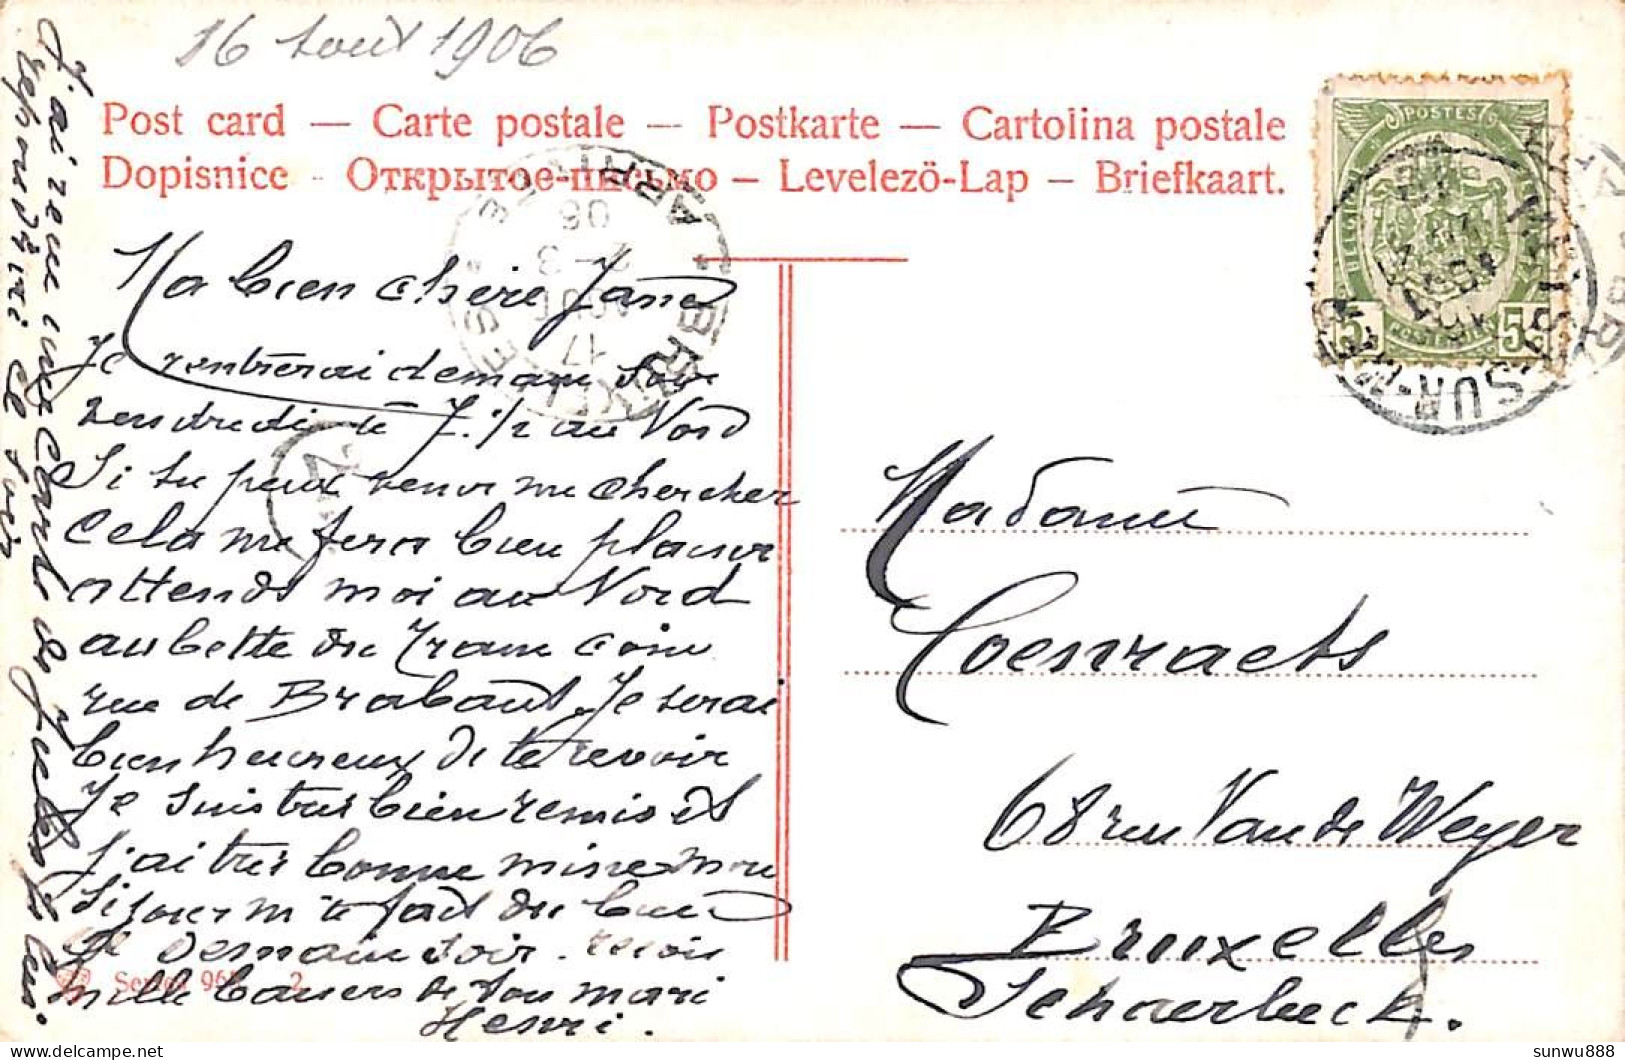 16 Aout 1906
Post card — Carte postale — Postkarte — Cartolina postale
Dopisnice - Открытое-письмо – Levelezö-Lap – Briefkaart.
Ma bien chère Jane
Je rentrerai demain soir
vendredi à 7.1/2 au Nord
Si tu peux venir me chercher
cela me fera bien plaisir
attends moi au Nord
au bette du tram coin
rue de Brabant. Je serai
bien heureux de te revoir
Je suis très bien remis et
j'ai très bonne mine mon
séjour m'a fait du bien
Demain soir. reçois
mille baisers de ton mari
Henri.
J'ai reçu une carte de Jules je lui
répondrai ce soir
Series 96 2
POSTES
BELGIQUE
5 5
SUR-MER
BRUXELLES
ARRIVÉE
17
AOUT
06
Madame
Coenraets
68 rue Van de Weyer
Bruxelles
Schaerbeek.
sunwu888